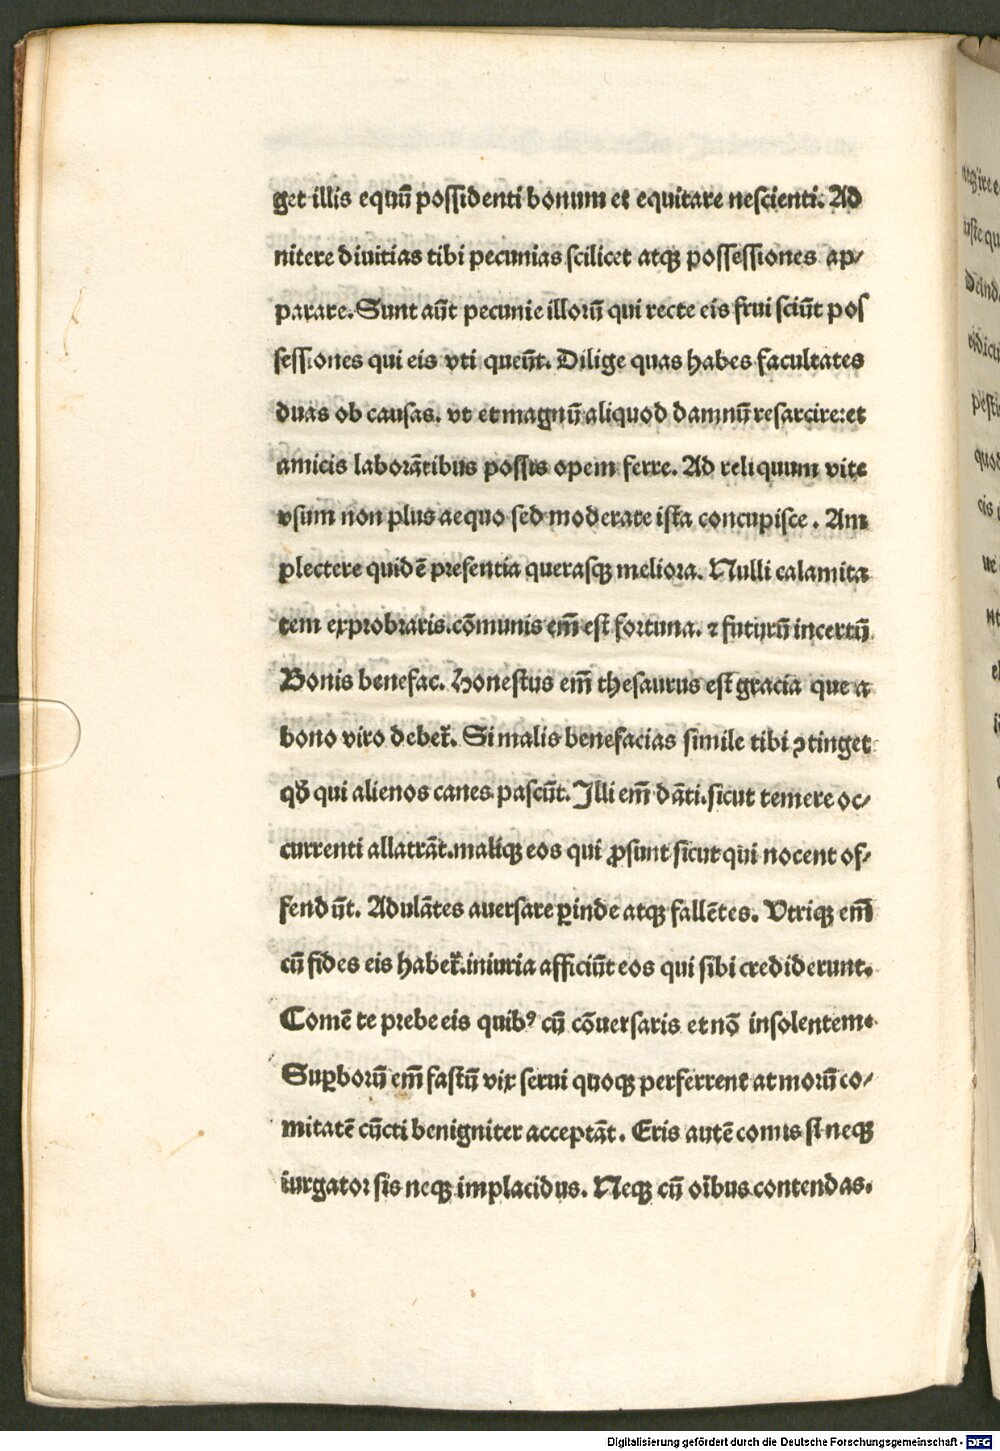 get illis equū possidenti bonum et equitare nescienti. Ad
nitere diuitias tibi pecunias scilicet atqꝫ possessiones ap⸗
parare. Sunt aūt pecunie illorū qui recte eis frui sciūt pos
sessiones qui eis vti queūt. Dilige quas habes facultates
duas ob causas. vt et magnū aliquod damnū resarcire: et
amicis laborātibus possis opem ferre. Ad reliquum vite
vsum non plus aequo sed moderate ista concupisce. Am
plectere quidē presentia querasqꝫ meliora. Nulli calamita
tem exprobraris. cōmunis em̄ est fortuna. ⁊ futurū incertū
Bonis benefac. Honestus em̄ thesaurus est gracia que a
bono viro debet᷑. Si malis benefacias simile tibi ꝯtinget
qđ qui alienos canes pascūt. Illi em̄ dāti. sicut temere oc⸗
currenti allatrāt. maliqꝫ eos qui ꝓsunt sicut qui nocent of⸗
fendūt. Adulātes auersare ꝑinde atqꝫ fallētes. Vtriqꝫ em̄
cū fides eis habet᷑. iniuria afficiūt eos qui sibi crediderunt.
Comē te prebe eis quibꝰ cū cōuersaris et nō insolentem.
Suꝑborū em̄ fastū vix serui quoqꝫ perferrent at morū co⸗
mitatē cūcti benigniter acceptāt. Eris autē comis si neqꝫ
iurgator sis neqꝫ implacidus. Neqꝫ cū oībus contendas.
Digitalisierung gefördert durch die Deutsche Forschungsgemeinschaft - DFG